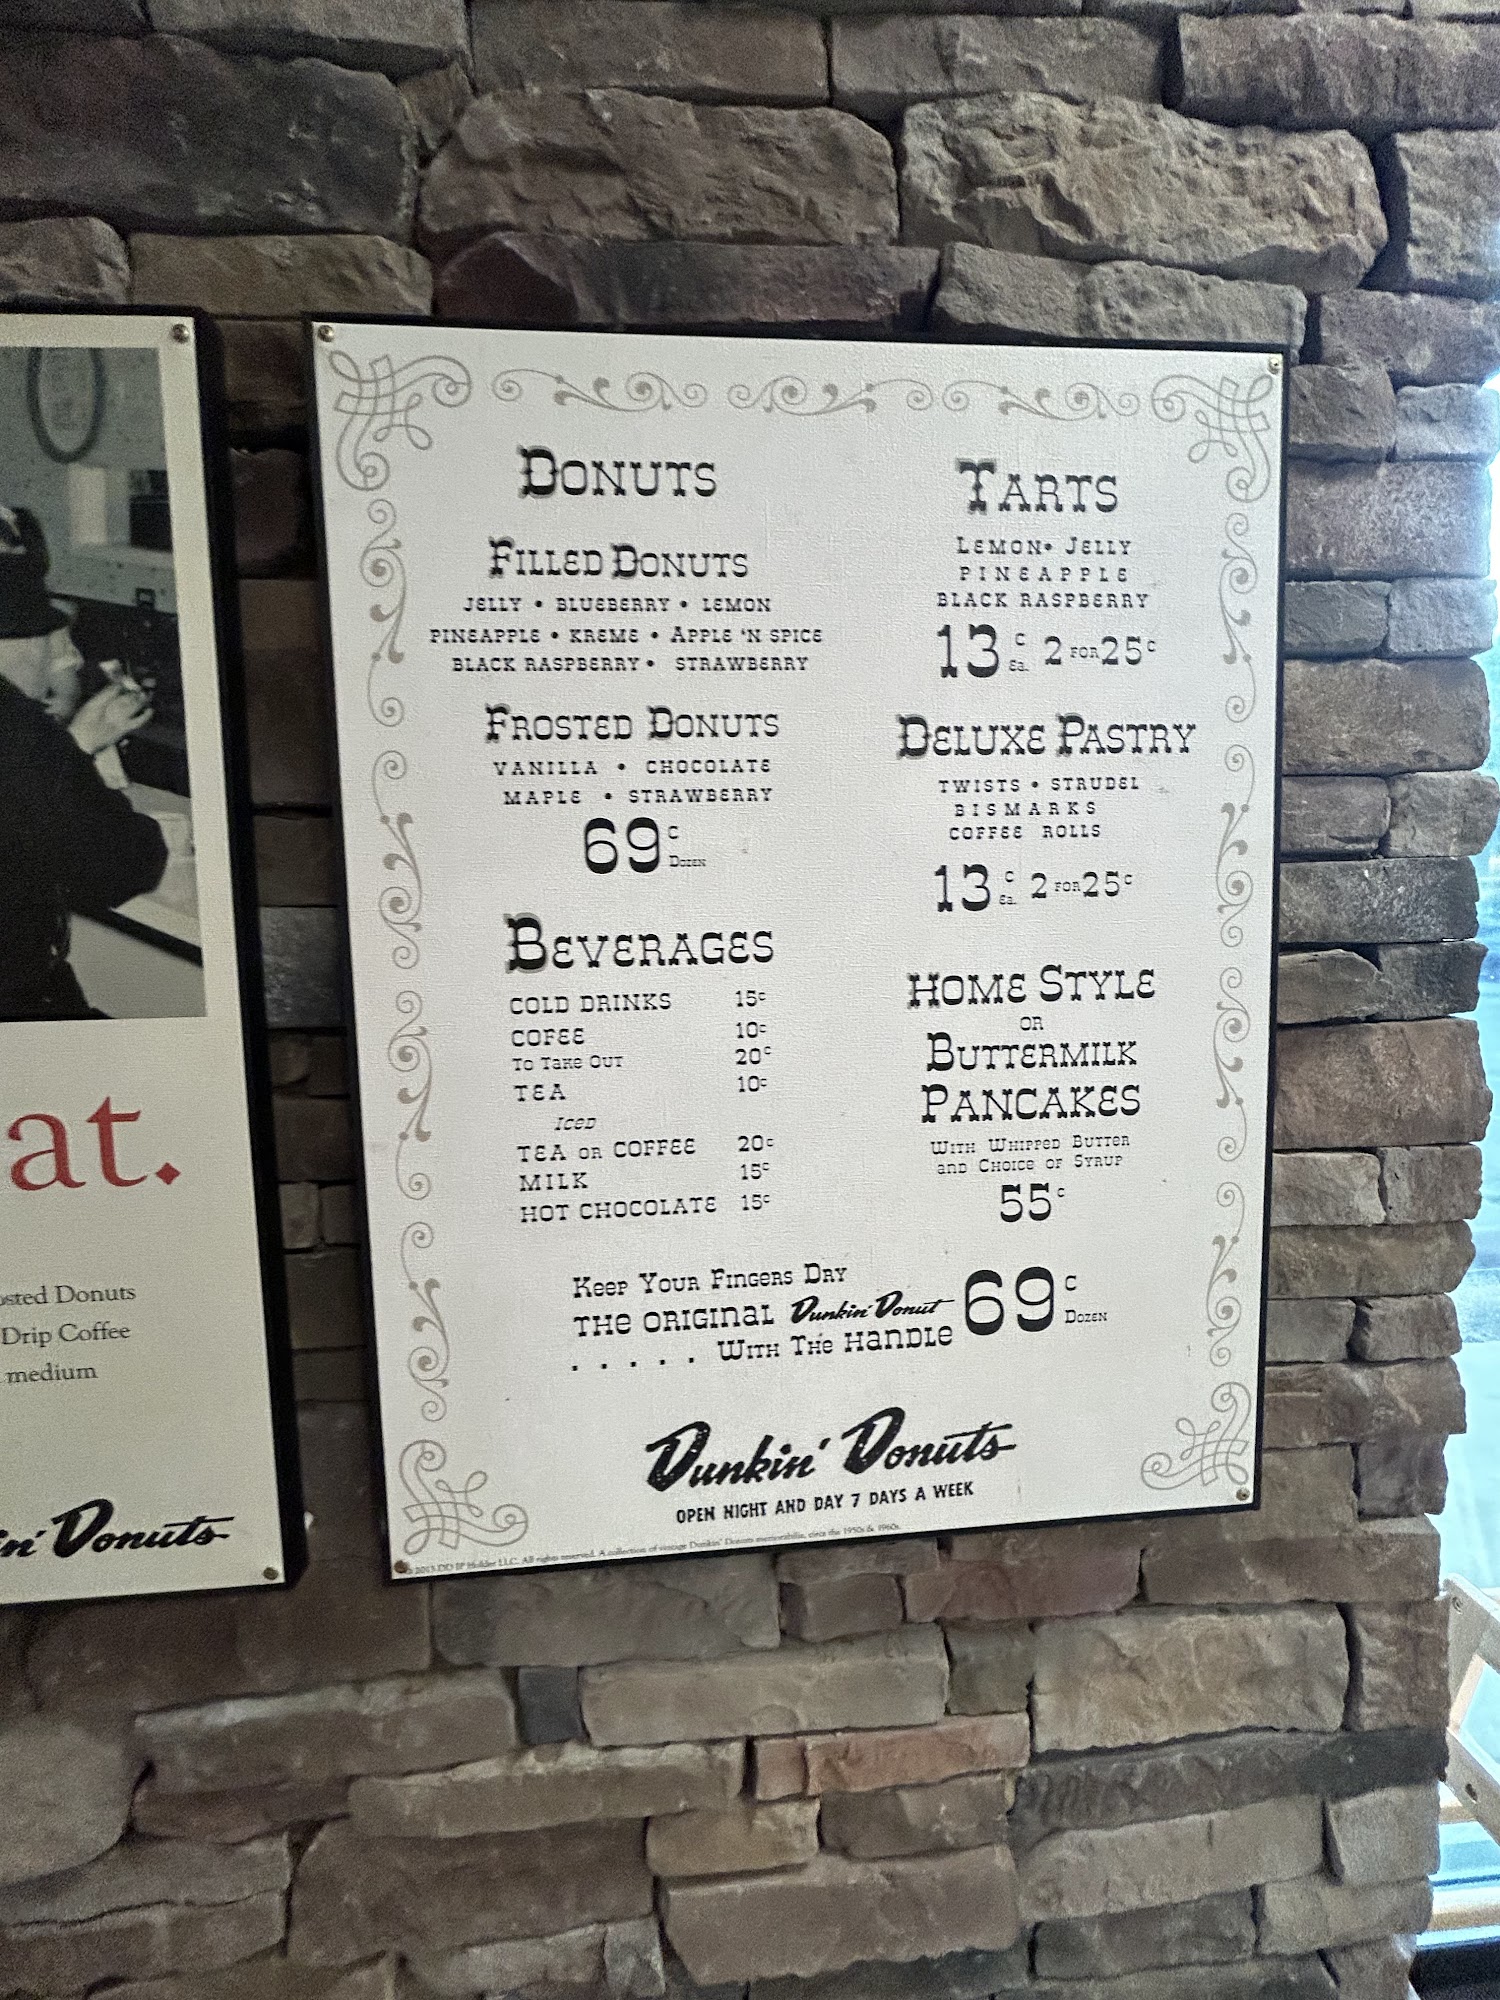 at.
osted Donuts
Drip Coffee
medium
in' Donuts
DONUTS
FILLED DONUTS
JELLY • BLUEBERRY • LEMON
PINEAPPLE • KREME • APPLE 'N SPICE
BLACK RASPBERRY • STRAWBERRY
FROSTED DONUTS
VANILLA • CHOCOLATE
MAPLE • STRAWBERRY
69c DOZEN
BEVERAGES
COLD DRINKS 15c
COFEE 10c
TO TAKE OUT 20c
TEA 10c
ICED
TEA OR COFFEE 20c
MILK 15c
HOT CHOCOLATE 15c
TARTS
LEMON • JELLY
PINEAPPLE
BLACK RASPBERRY
13c Ea. 2 FOR 25c
DELUXE PASTRY
TWISTS • STRUDEL
BISMARKS
COFFEE ROLLS
13c Ea. 2 FOR 25c
HOME STYLE
OR
BUTTERMILK
PANCAKES
WITH WHIPPED BUTTER
AND CHOICE OF SYRUP
55c
KEEP YOUR FINGERS DRY
THE ORIGINAL Dunkin' Donut
. . . . . WITH THE HANDLE
69c DOZEN
Dunkin' Donuts
OPEN NIGHT AND DAY 7 DAYS A WEEK
© 2013 DD IP Holder LLC. All rights reserved. A collection of vintage Dunkin' Donuts memorabilia, circa the 1950s & 1960s.